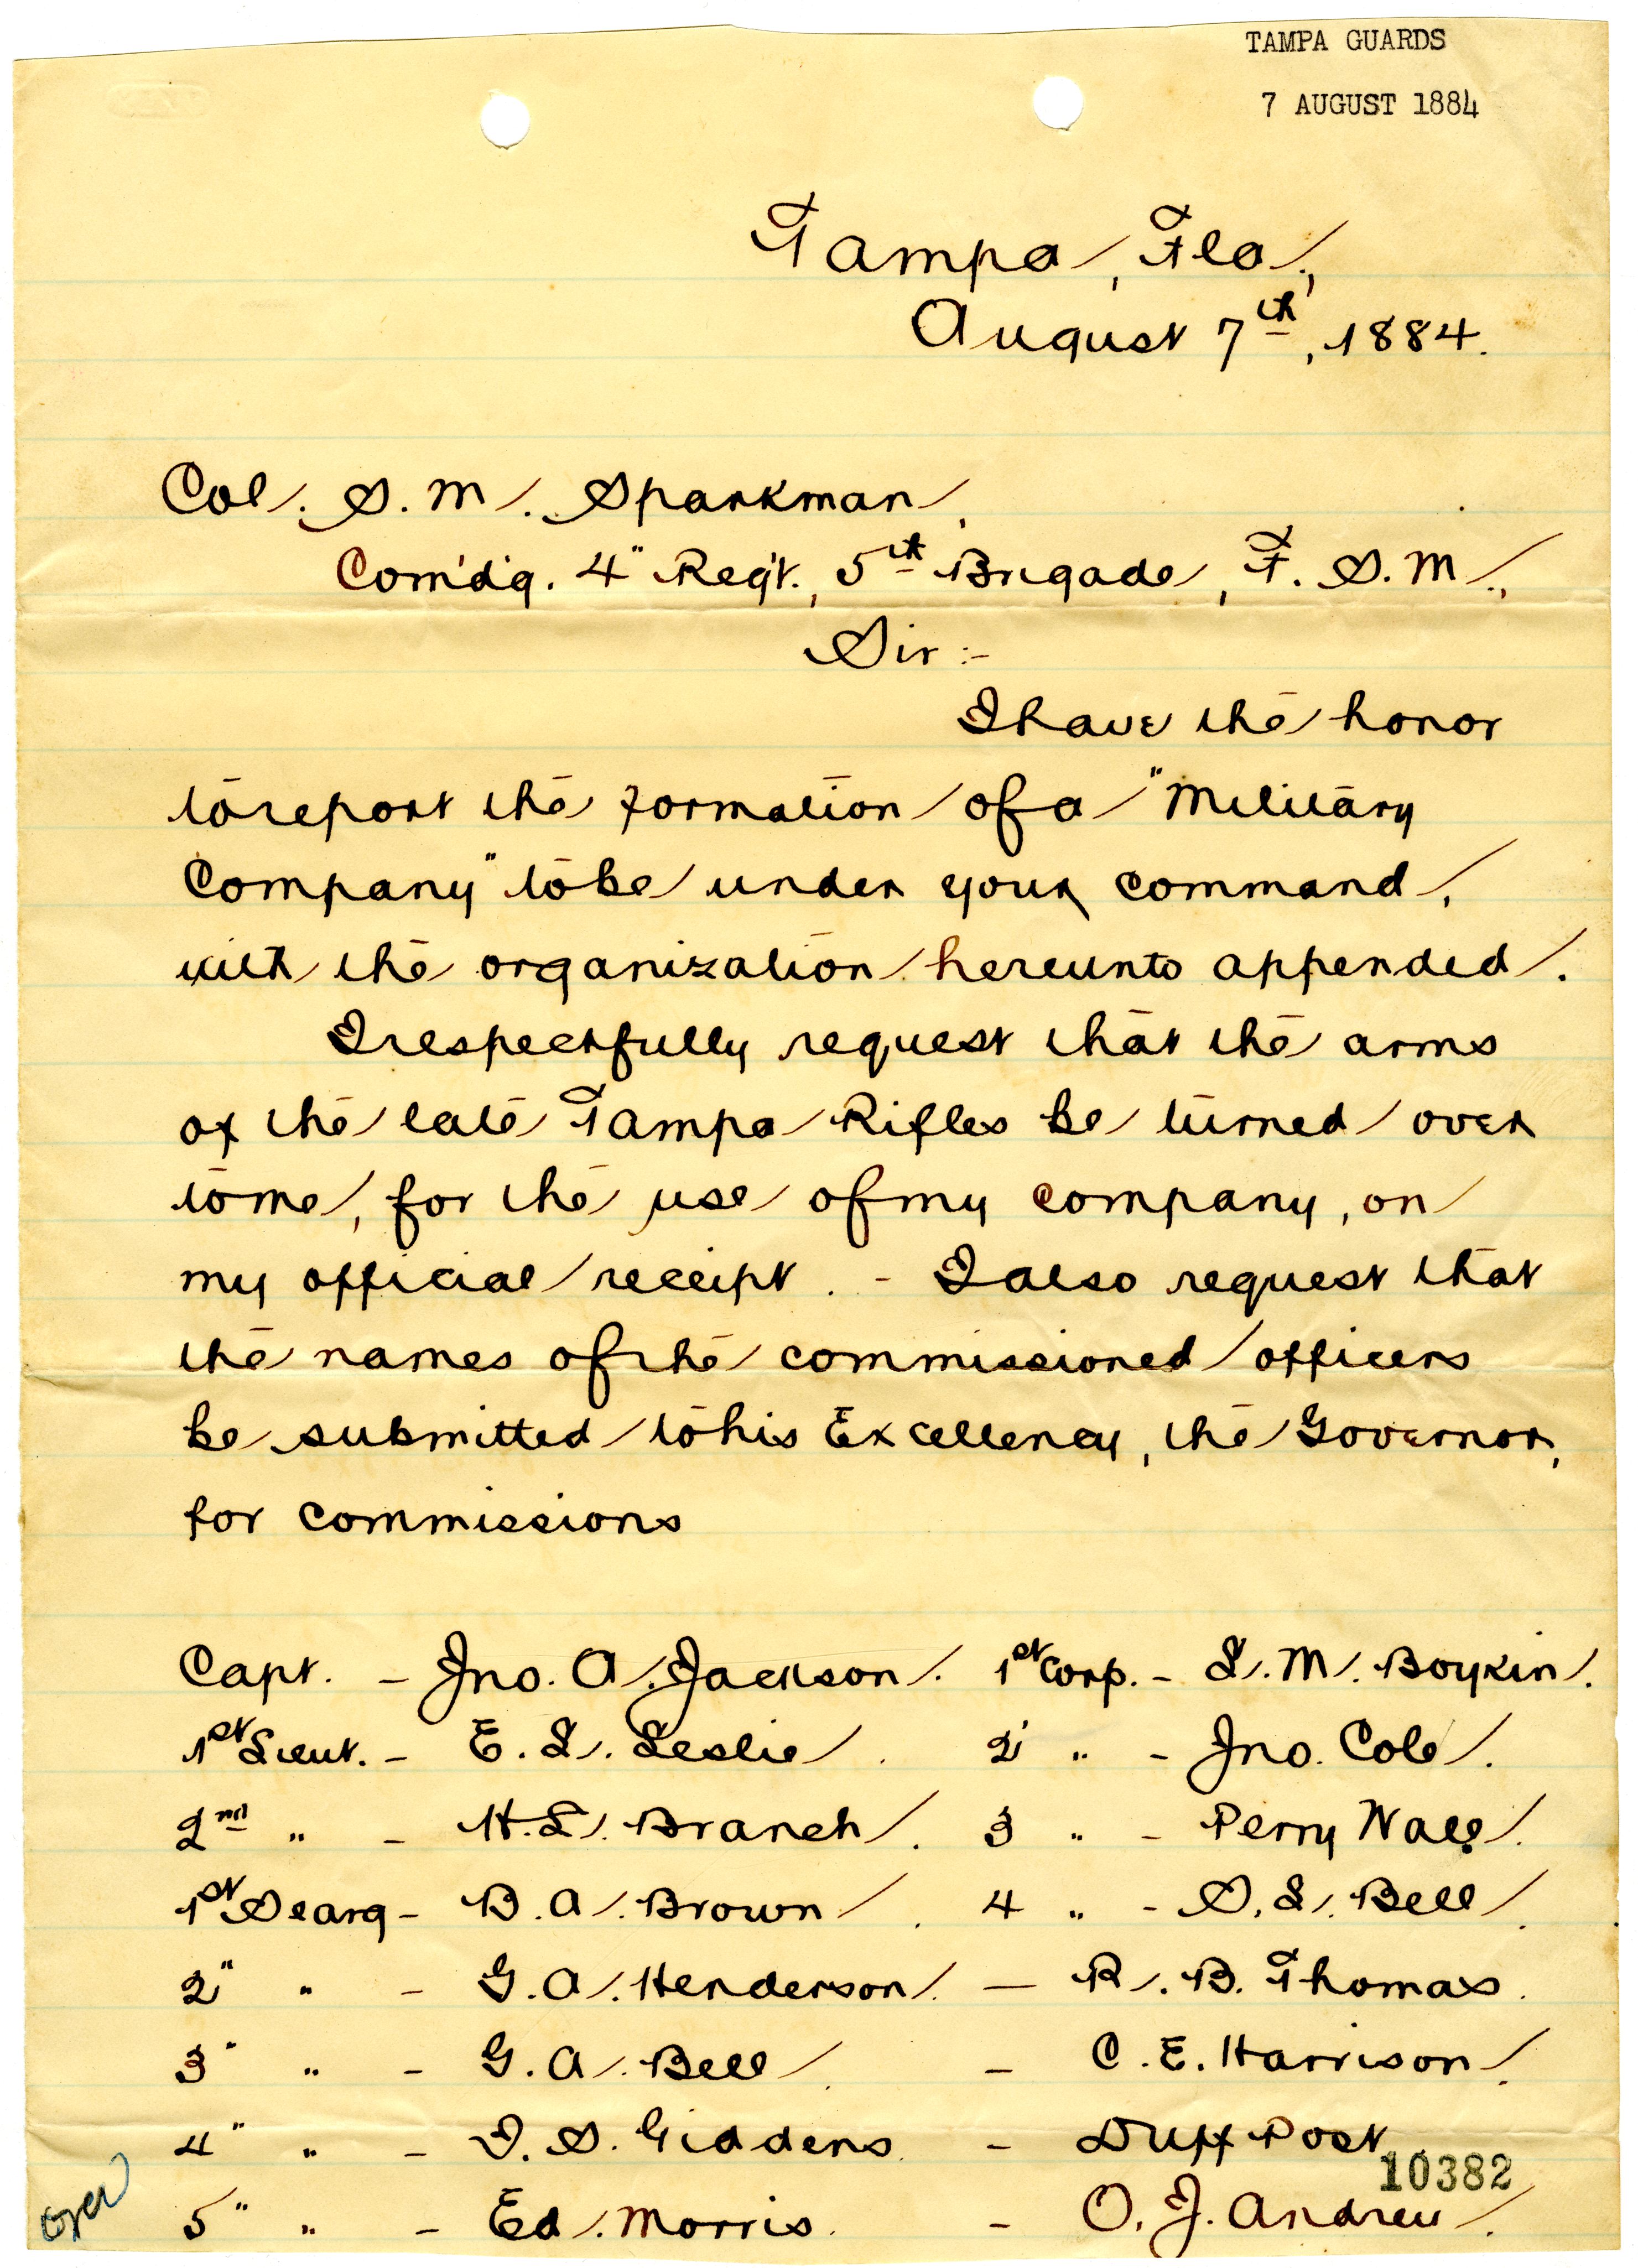 TAMPA GUARDS
7 AUGUST 1884
Tampa, Fla.,
August 7th, 1884.
Col. S. M. Sparkman,
Com'd'g. 4" Reg't., 5th Brigade, F. S. M.,
Sir:-
I have the honor
to report the formation of a "Military
Company" to be under your command,
with the organization hereunto appended.
I respectfully request that the arms
of the late Tampa Rifles be turned over
to me, for the use of my company, on
my official receipt. - I also request that
the names of the commissioned officers
be submitted to his Excellency, the Governor,
for commissions
Capt. - Jno. A. Jackson. 1st Corp. - L. M. Boykin.
1st Lieut. - E. L. Leslie. 2" " - Jno. Cole.
2nd " - H. L. Branch. 3 " - Perry Wall.
1st Searg - B. A. Brown. 4 " - S. L. Bell.
2" " - G. A. Henderson. - R. B. Thomas.
3" " - G. A. Bell. - C. E. Harrison.
4" " - I. S. Giddens. - Duff Post
10382
5" " - Ed. Morris. - O. J. Andreu.
over